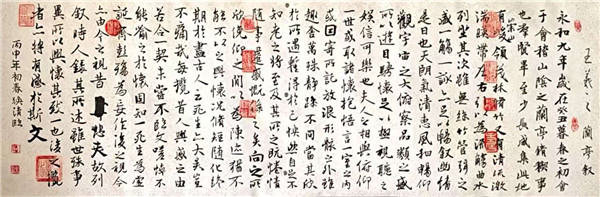 王羲之蘭亭叙
永和九年歲在癸丑暮春之初會
于會稽山陰之蘭亭脩禊事
也羣賢畢至少長咸集此地
有崇山峻領茂林脩竹又有清流激
湍暎帶左右引以為流觴曲水
列坐其次雖無絲竹管弦之
盛一觴一詠亦足以暢叙幽情
是日也天朗氣清惠風和暢仰
觀宇宙之大俯察品類之盛
所以遊目騁懷足以極視聽之
娛信可樂也夫人之相與俯仰
一世或取諸懷抱悟言一室之內
或因寄所託放浪形骸之外雖
趣舍萬殊靜躁不同當其欣
於所遇蹔得於己怏然自足不
知老之將至及其所之既惓情
隨事遷感慨係之矣向之所
欣俛仰之間以為陳迹猶不
能不以之興懷況脩短隨化終
期於盡古人云死生亦大矣豈
不痛哉每攬昔人興感之由
若合一契未嘗不臨文嗟悼不
能喻之於懷固知一死生為虛
誕齊彭殤為妄作後之視今
亦由今之視昔悲夫故列
敘時人錄其所述雖世殊事
異所以興懷其致一也後之攬
者亦將有感於斯文
丙申年初春